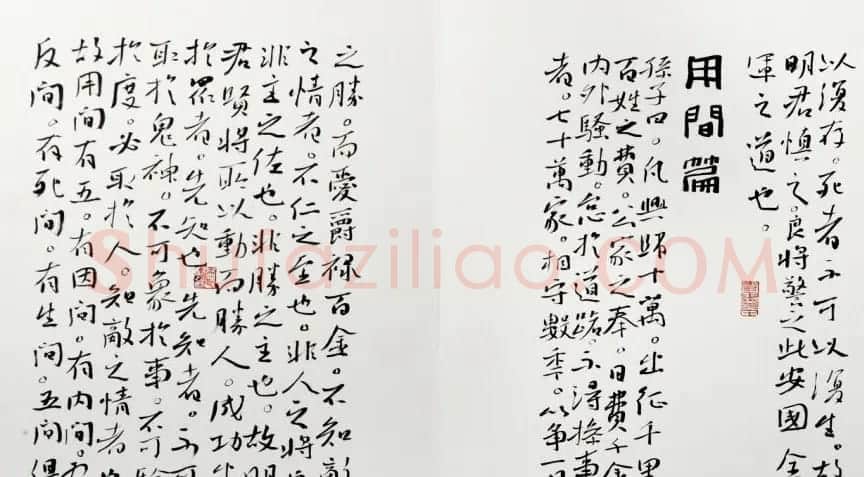 以復存。死者不可以復生。故
明君慎之。良將警之此安國全
軍之道也。
用間篇
孫子曰。凡興師十萬。出征千里
百姓之費。公家之奉。日費千金
内外騷動。怠於道路。不得操事
者。七十萬家。相守數年。以爭一日
之勝。而愛爵祿百金。不知敵
之情者。不仁之至也。非人之將
非主之佐也。非勝之主也。故明
君賢將所以動而勝人。成功出
於眾者。先知也。先知者。不可
取於鬼神。不可象於事。不可驗
於度。必取於人。知敵之情者
故用間有五。有因間。有内間。有
反間。有死間。有生間。五間俱
Shufaziliao.COM